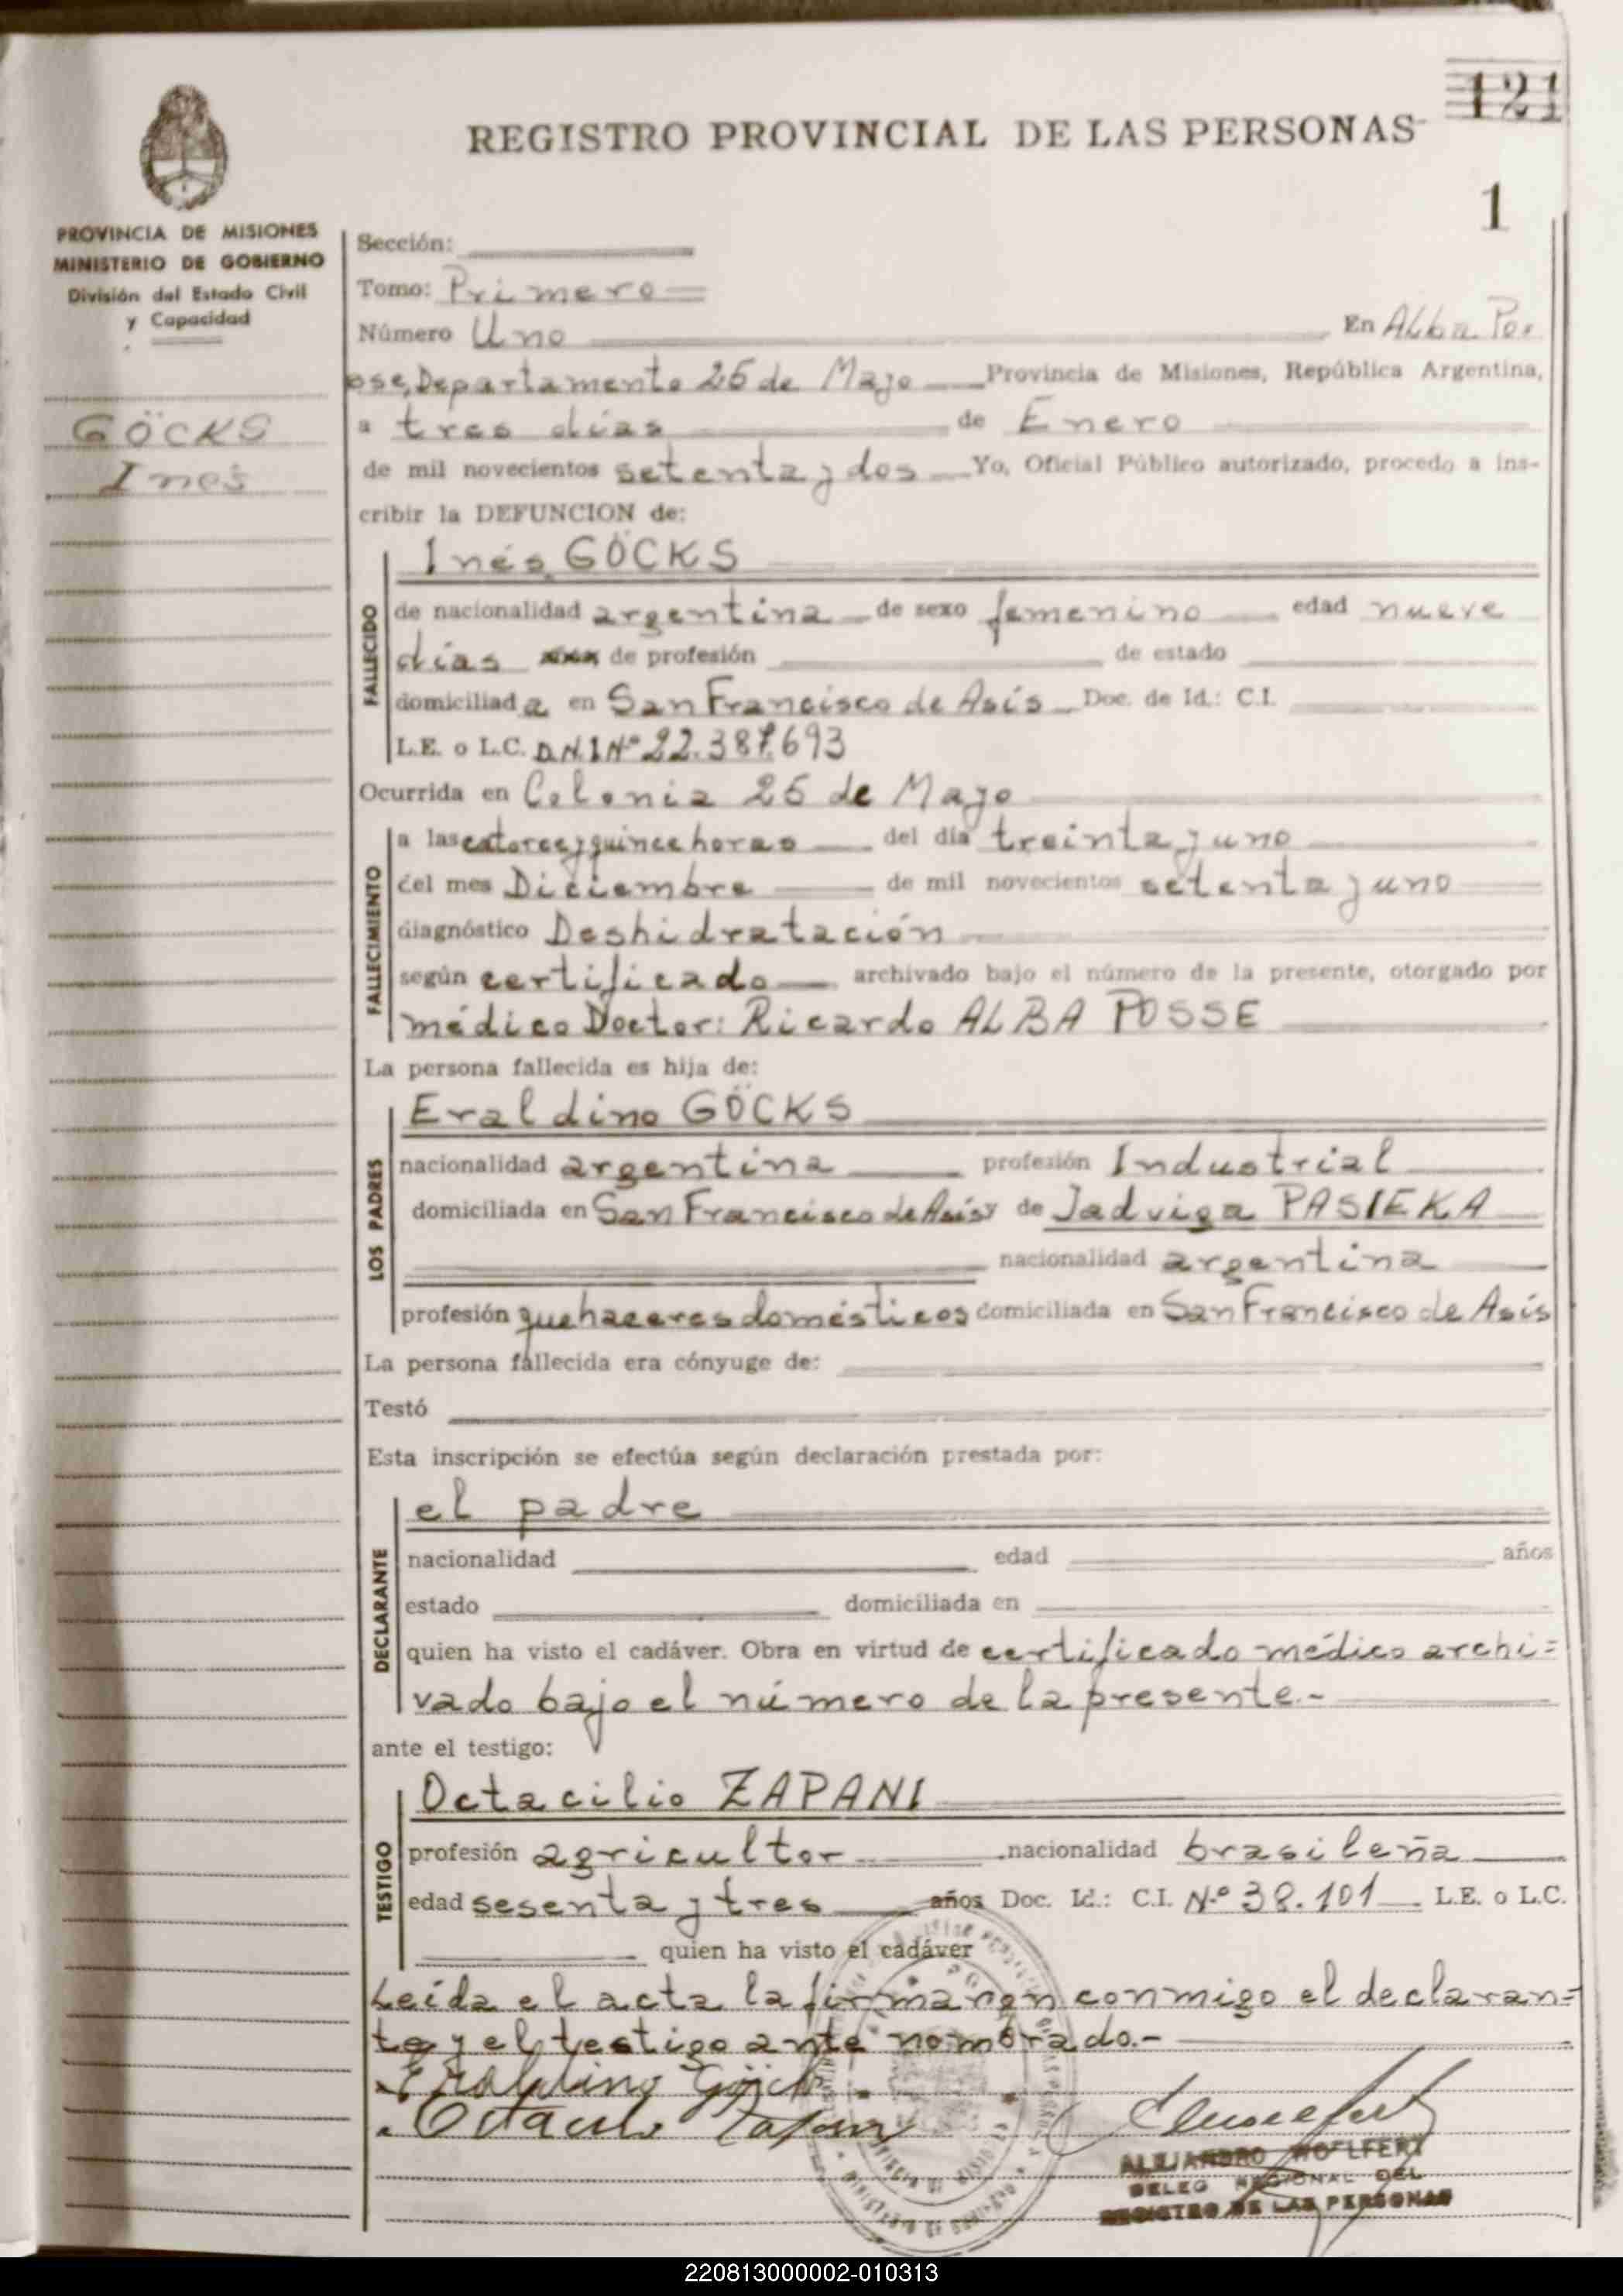 121
REGISTRO PROVINCIAL DE LAS PERSONAS
1
PROVINCIA DE MISIONES
MINISTERIO DE GOBIERNO
División del Estado Civil
y Capacidad
GÖCKS
Inés
Sección:
Tomo: Primero
Número Uno En Alba Po
osse, Departamento 25 de Mayo Provincia de Misiones, República Argentina,
a tres días de Enero
de mil novecientos setenta y dos Yo, Oficial Público autorizado, procedo a ins-
cribir la DEFUNCION de:
Inés GÖCKS
FALLECIDO
de nacionalidad argentina de sexo femenino edad nueve
días de profesión de estado
domiciliada en San Francisco de Asís Doc. de Id.: C.I.
L.E. o L.C. D.N.I Nº 22.387.693
Ocurrida en Colonia 25 de Mayo
FALLECIMIENTO
a las catorce y quince horas del día treinta y uno
del mes Diciembre de mil novecientos setenta y uno
diagnóstico Deshidratación
según certificado archivado bajo el número de la presente, otorgado por
médico Doctor: Ricardo ALBA POSSE
La persona fallecida es hija de:
Eraldino GÖCKS
LOS PADRES
nacionalidad argentina profesión Industrial
domiciliada en San Francisco de Asís y de Jadviga PASIEKA
nacionalidad argentina
profesión quehaceres domésticos domiciliada en San Francisco de Asís
La persona fallecida era cónyuge de:
Testó
Esta inscripción se efectúa según declaración prestada por:
el padre
DECLARANTE
nacionalidad edad años
estado domiciliada en
quien ha visto el cadáver. Obra en virtud de certificado médico archi=
vado bajo el número de la presente.-
ante el testigo:
Octacilio ZAPANI
TESTIGO
profesión agricultor nacionalidad brasileña
edad sesenta y tres años Doc. Id.: C.I. Nº 38.101 L.E. o L.C.
quien ha visto el cadáver
Leída el acta la firmaron conmigo el declaran=
te y el testigo ante nombrado.-
ALEJANDRO WOLFERT
DELEG REGIONAL DEL
REGISTRO DE LAS PERSONAS
220813000002-010313